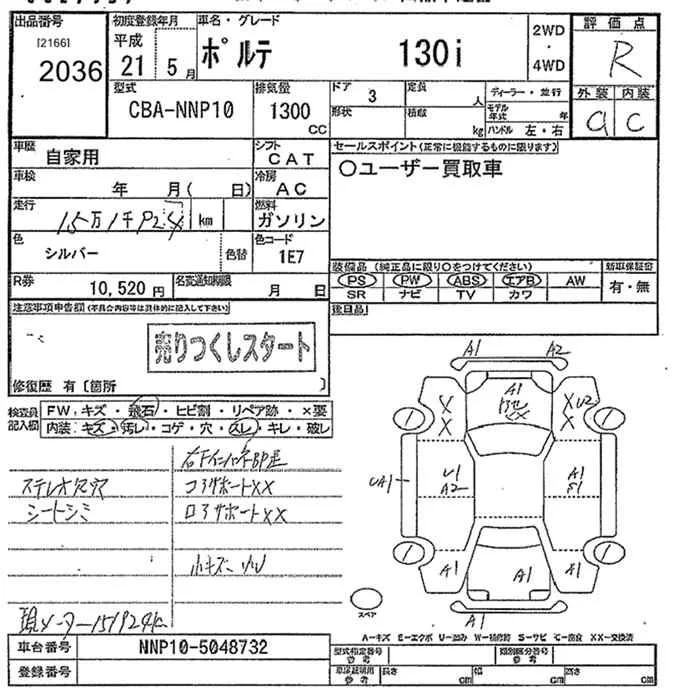 出品番号
[2166]
2036
初度登録年月
平成
21 5月
車名・グレード
ポルテ 130i
2WD
・
4WD
評価点
R
外装 内装
a C
型式
CBA-NNP10
排気量
1300
CC
ドア
3
定員
人
形状
積載
kg
ディーラー・並行
モデル年式 年
ハンドル 左・右
車歴
自家用
シフト
CAT
車検
年 月( 日)
冷房
AC
走行
15万1千924 km
燃料
ガソリン
色
シルバー
色替
色コード
1E7
R券
10,520円
名変通知期限
月 日
セールスポイント(正常に機能するものに限ります)
○ユーザー買取車
装備品(純正品に限り○をつけてください)
PS PW ABS エアB AW
SR ナビ TV カワ
新車保証書
有・無
後日品
注意事項申告欄(不具合内容等は具体的に記入して下さい)
売りつくしスタート
修復歴 有〔箇所 〕
検査員
記入欄
FW:キズ・飛石・ヒビ割・リペア跡・×要
内装:キズ・汚レ・コゲ・穴・スレ・キレ・破レ
ステレオ欠穴
シートシミ
コアサポートXX
小キズ
A1 A2
A1
XX
X
X
XU2
X
UA1
U1
A2
A1
S1
A1
A1
A1
A1
スペア
A−キズ E−エクボ U−凹み W−補修跡 S−サビ C−腐食 XX−交換済
車台番号
NNP10-5048732
登録番号
型式指定番号
参考
類別区分番号
参考
車庫証明用
参考
長さ cm
幅 cm
高さ cm